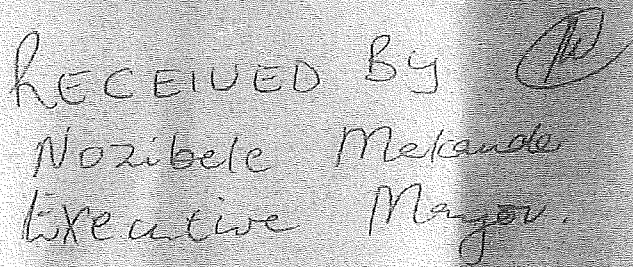 RECEIVED By
Nozibele Makanda
Executive Mayor.